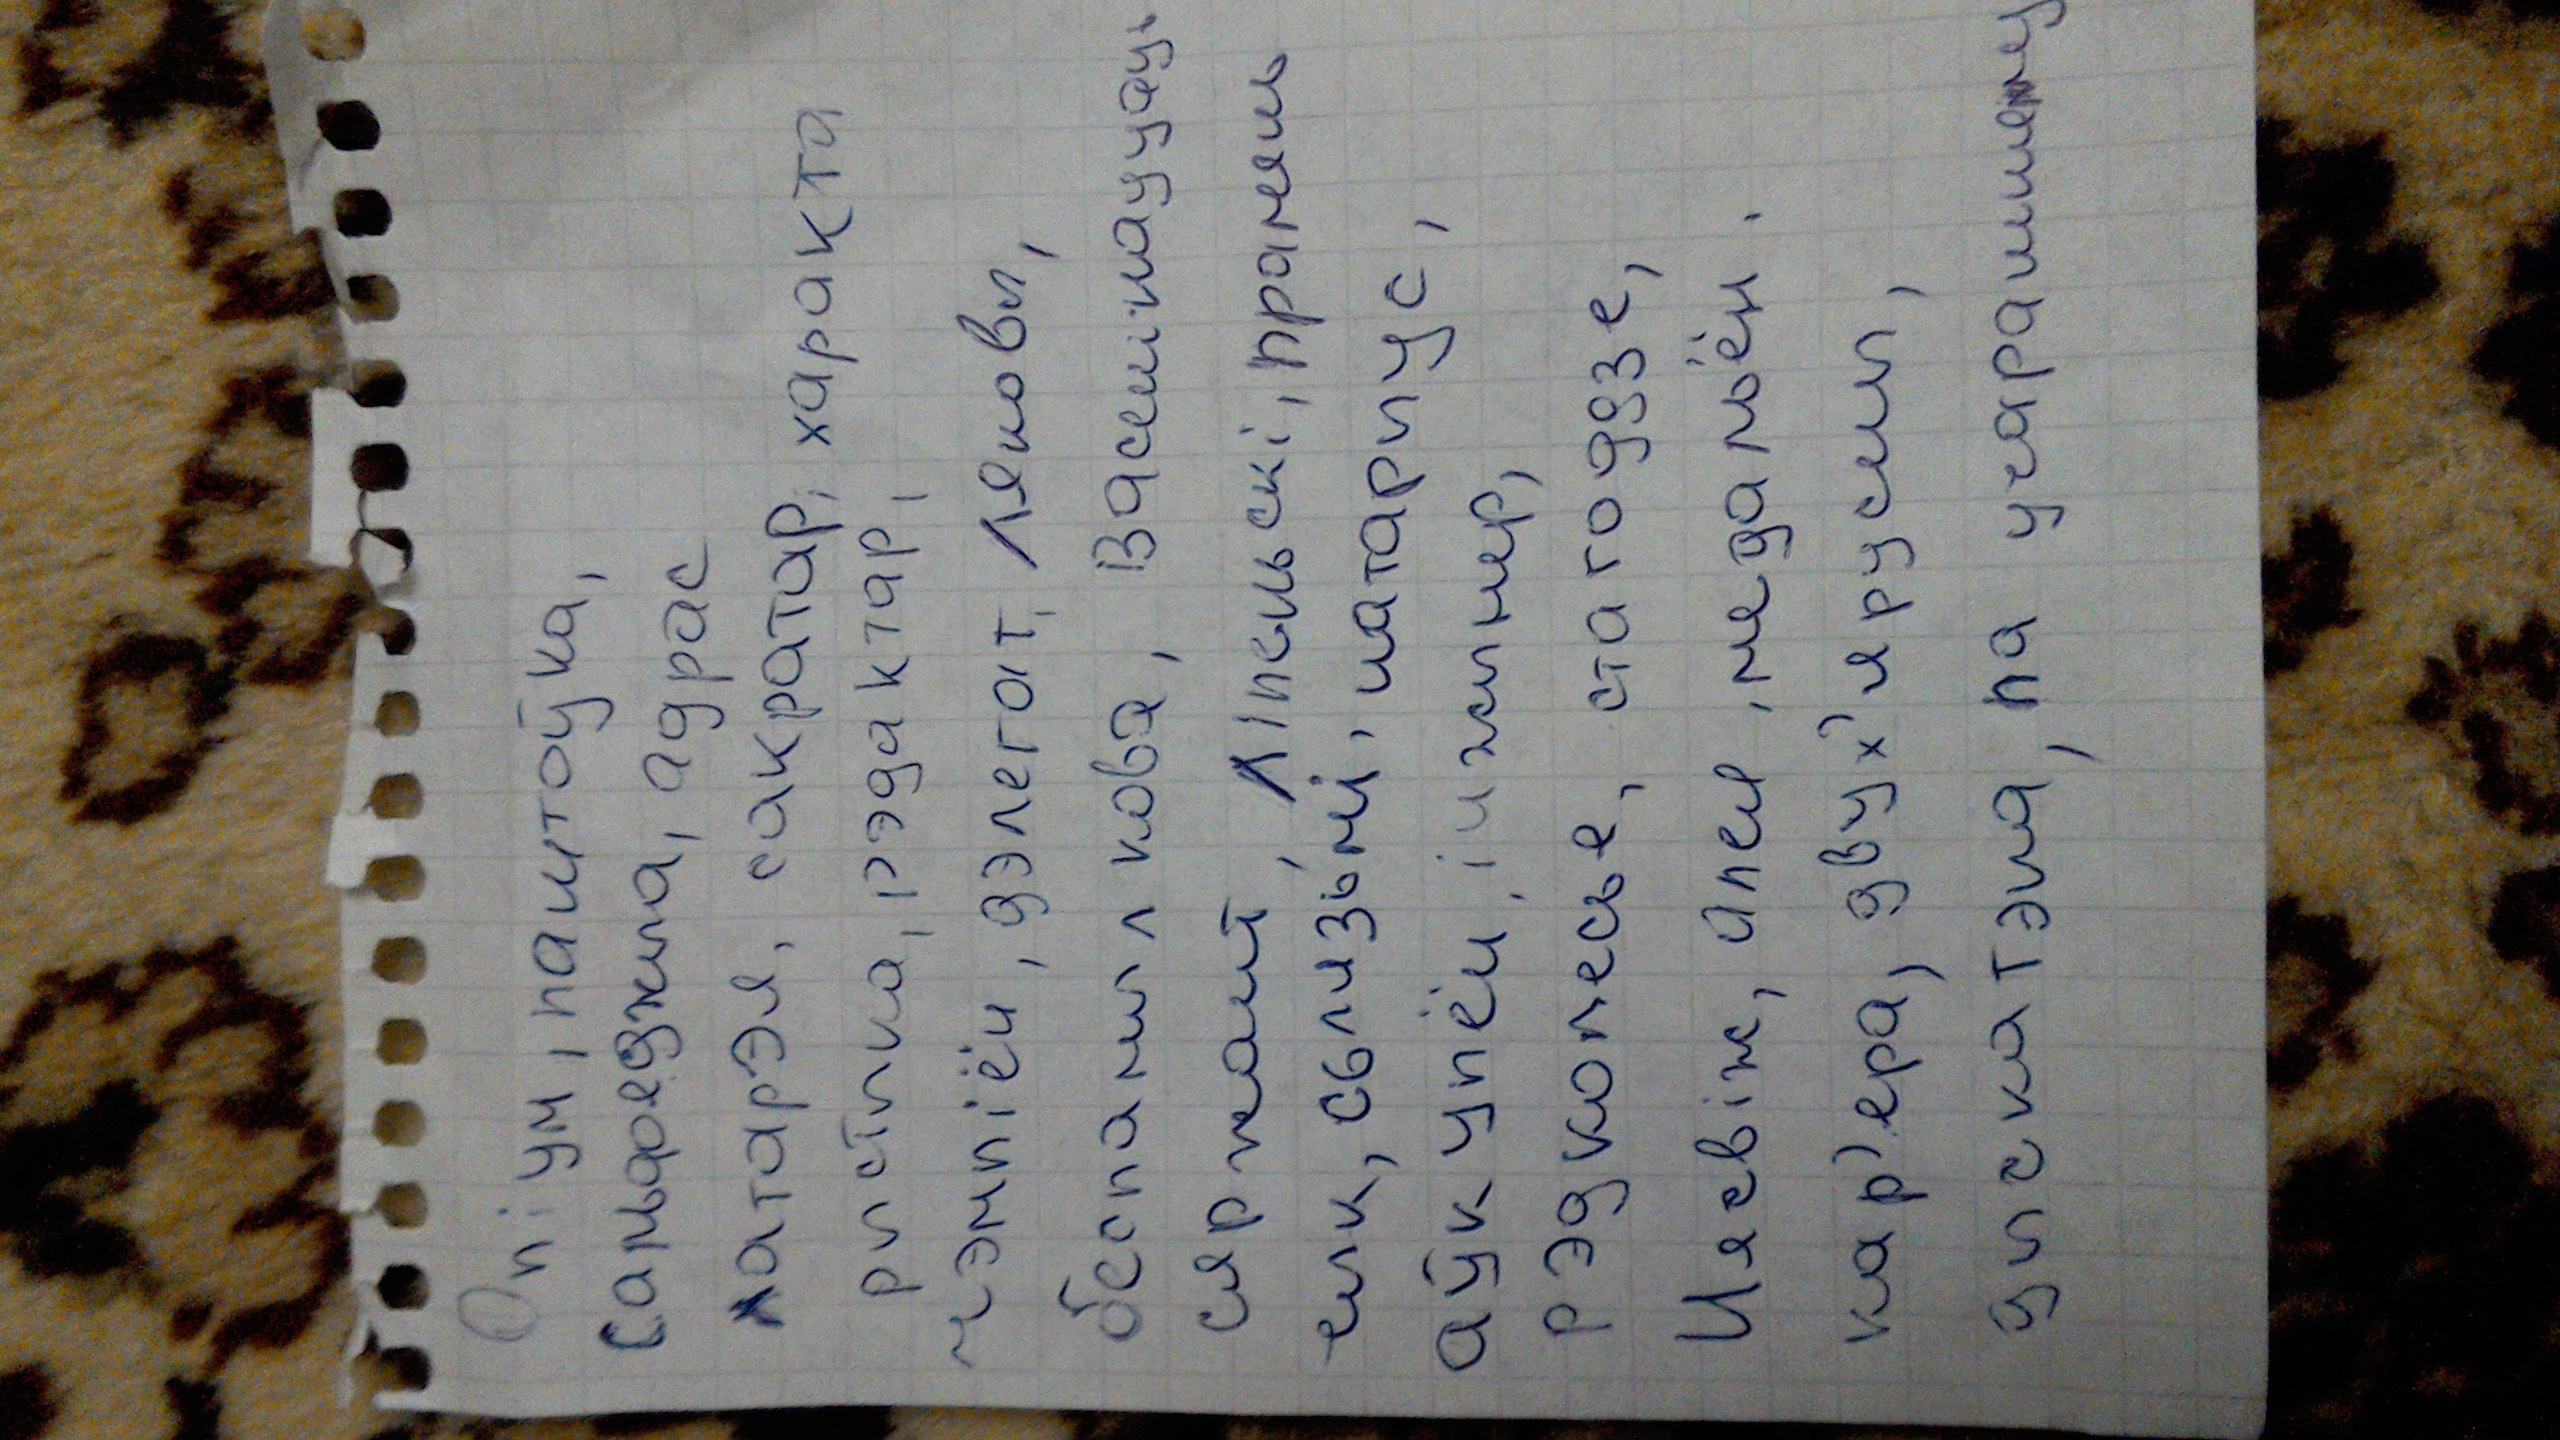 Опіум, паштоўка,
Сальфеджыа, адрас
латарэя, сакратар, характа
рыстыка, рэдактар,
чэмпіён, дэлегат, ляковы,
беспамылкова, Васемнаццаць
сяржант, Ліпельскі, прамянь
чык, сьлязьмі, натарыус,
аўкцыён, інжынер,
рэдколесье, стагоддзе,
Нясвіж, алея, медальён.
кар'ера, двух'ярусны,
дыскатэка, па учарашняму